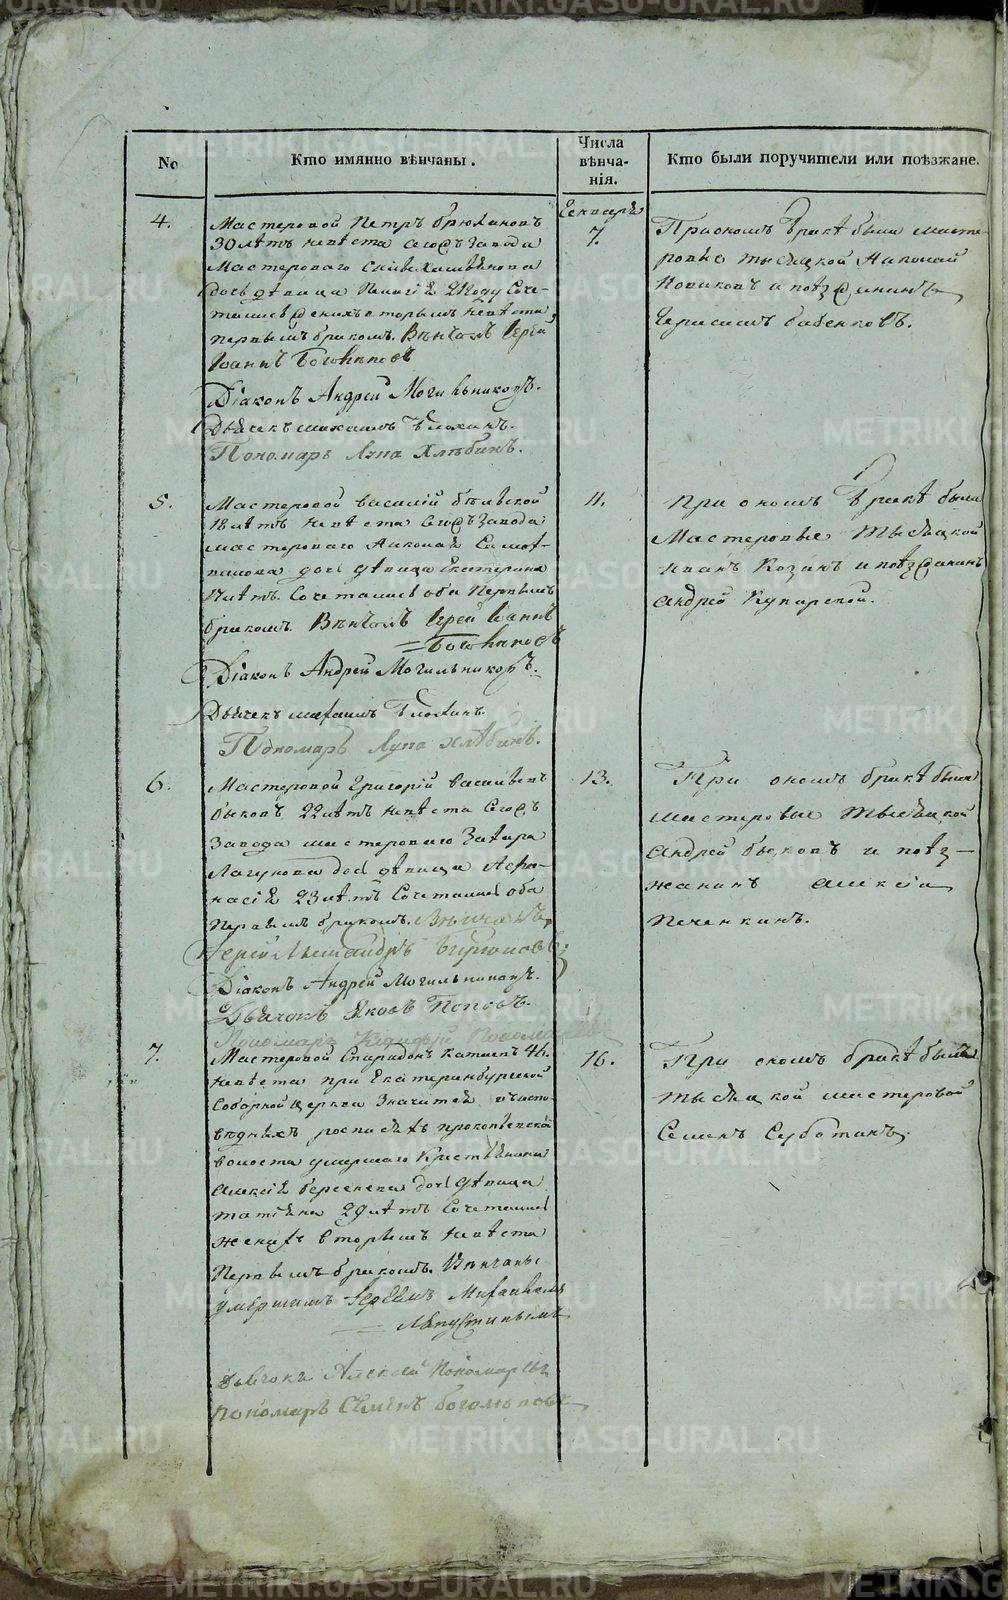 METRIKI.GASO-URAL.RU
No
Кто имянно вѣнчаны.
Числа вѣнча-
нія.
Кто были поручители или поѣзжане.
4.
Мастеровой Петръ Брюхановъ
30 лѣтъ невѣста сегожъ завода
мастероваго
дочь дѣвица году Соче-
тались женихъ вторымъ невѣста
первымъ бракомъ. Вѣнчалъ Іерей
Іоаннъ
Діаконъ Андрей Могильниковъ.
Дьячекъ Михаилъ Блохинъ.
Пономарь Лупа Хлѣбинъ.
Генваря
7.
При ономъ бракѣ были масте-
ровые тысяцкой Николай
Новиковъ и поѣзжанинъ
Герасимъ Бабенковъ.
5.
Мастеровой Василій Бѣлѣвской
18 лѣтъ невѣста сегожъ завода
мастероваго Николая
дочь дѣвица Екатерина
лѣтъ. Сочетались оба первымъ
бракомъ. Вѣнчалъ Іерей Іоаннъ
Діаконъ Андрей Могильниковъ.
Дьячекъ Михаилъ Блохинъ.
Пономарь Лупа Хлѣбинъ.
11.
При ономъ бракѣ были
мастеровые тысяцкой
Иванъ Козинъ и поѣзжанинъ
Андрей
6.
Мастеровой Григорій Васильевъ
Быковъ 22 лѣтъ невѣста сегожъ
завода мастероваго Захара
Лагунова дочь дѣвица Афа-
насія 23 лѣтъ Сочетались оба
первымъ бракомъ. Вѣнчалъ
Іерей Александръ Бирюковъ
Діаконъ Андрей Могильниковъ.
Дьячокъ Яковъ Поповъ.
Пономарь
13.
При ономъ бракѣ были
мастеровые тысяцкой
Андрей Быковъ и поѣз-
жанинъ Алексѣй
Печенкинъ.
7.
Мастеровой Спиридонъ Катаевъ 46.
невѣста при Екатеринбургской
Соборной церкви
росписяхъ
волости умершаго крестьянина
Алексѣя дочь дѣвица
Татіана 29 лѣтъ Сочетались
женихъ вторымъ невѣста
первымъ бракомъ. Вѣнчаны
умершимъ Іереемъ Михаиломъ
Лапустинымъ
Дьячокъ Алексѣй Пономаревъ
Пономарь Семенъ Богомоловъ
16.
При ономъ бракѣ былъ
тысяцкой мастеровой
Семенъ Суботинъ.